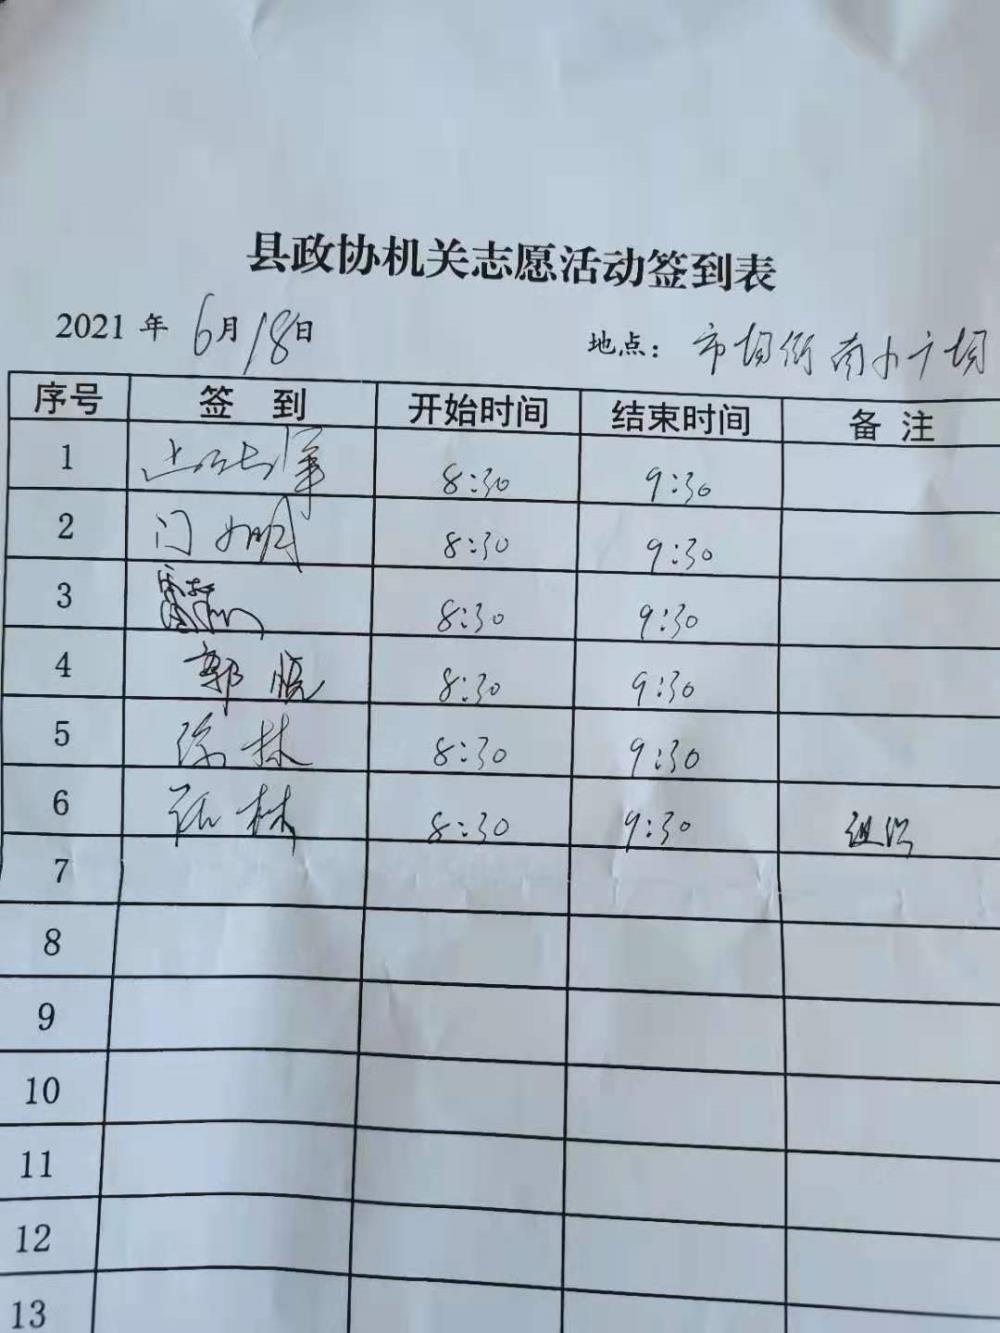 县政协机关志愿活动签到表
2021 年 6月18日 地点：市场街南小广场
序号 签 到 开始时间 结束时间 备 注
1 8:30 9:30
2 门 明 8:30 9:30
3 8:30 9:30
4 郭悦 8:30 9:30
5 徐林 8:30 9:30
6 林 8:30 9:30 组织
7
8
9
10
11
12
13